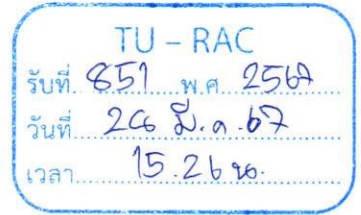 TU – RAC
รับที่ 851 พ.ศ. 2567
วันที่ 26 มี.ค. 67
เวลา 15.26 น.